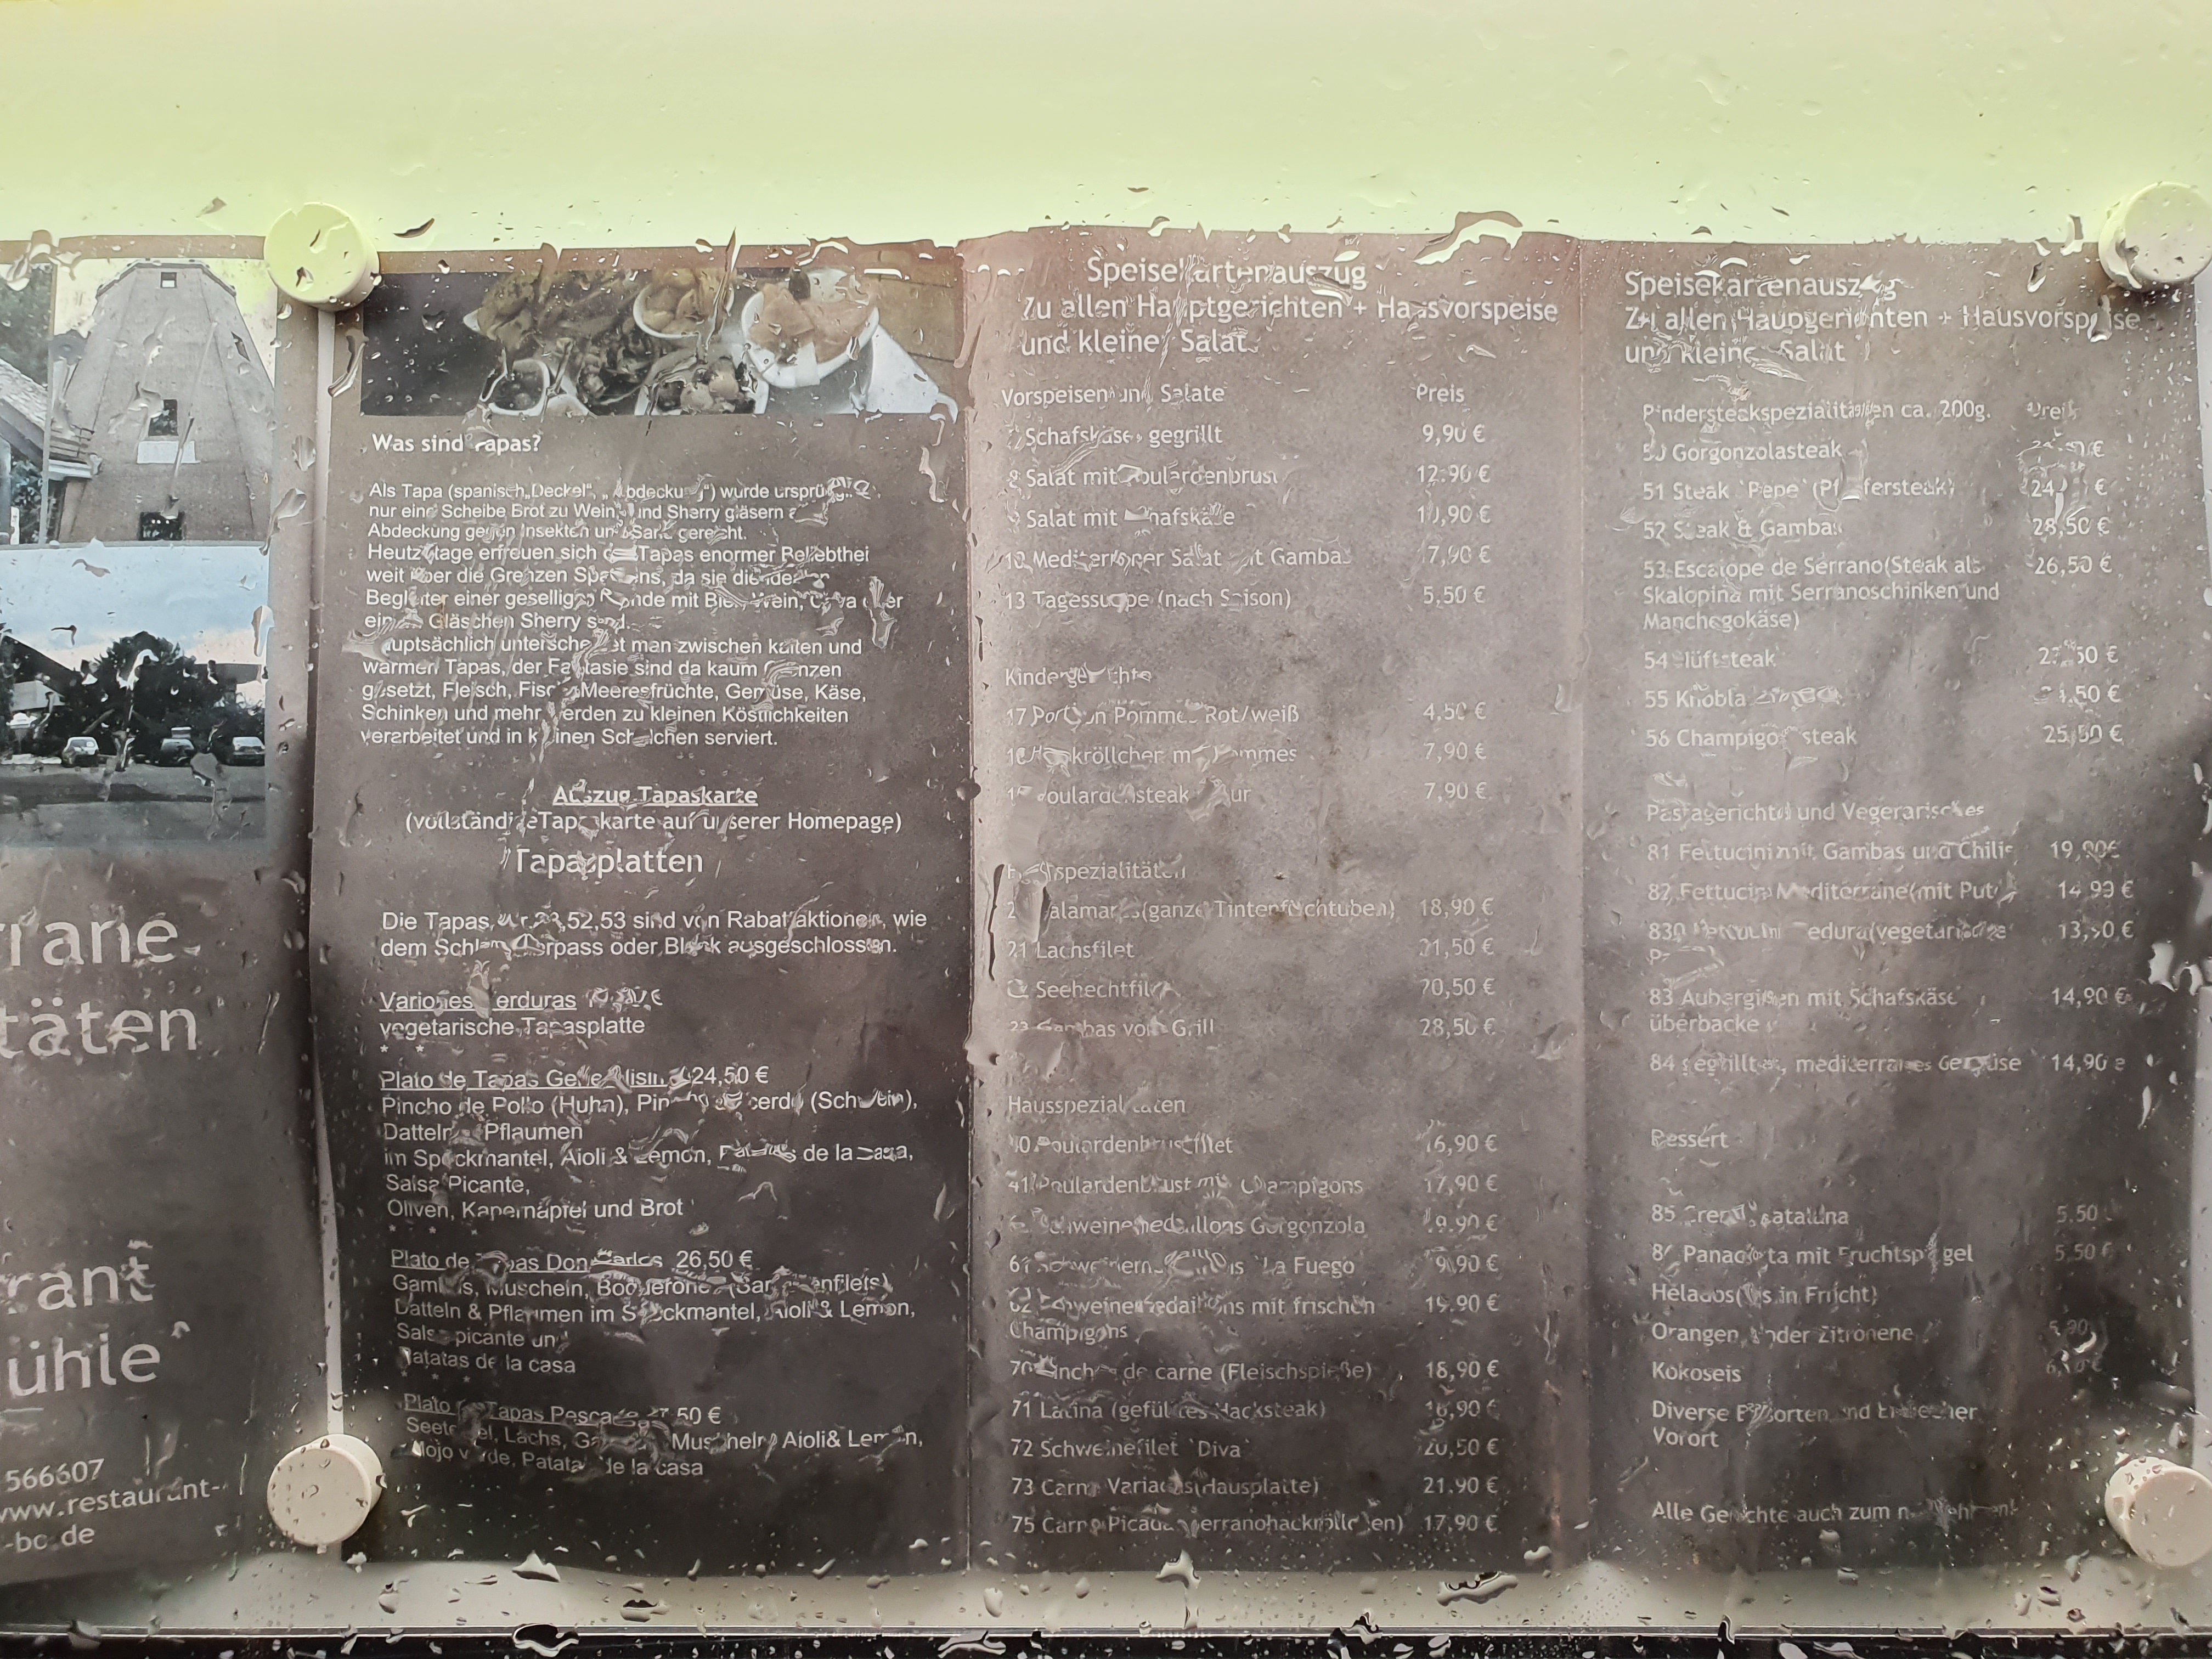 rrane
täten
rant
ühle
566607
www.restaurant-
-bc.de
Was sind Tapas?
Als Tapa (spanisch „Deckel“, „Abdeckung“) wurde
nur eine Scheibe Brot zu Wein- und Sherry gläsern
Abdeckung gegen Insekten und Sand gereicht.
Heutzutage erfreuen sich die Tapas enormer Beliebthei
weit über die Grenzen Spaniens, da sie die
Begleiter einer geselligen Runde mit Bier, Wein, Cava oder
ein Gläschen Sherry sind.
Hauptsächlich unterscheidet man zwischen kalten und
warmen Tapas, der Fantasie sind da kaum Grenzen
gesetzt, Fleisch, Fisch, Meeresfrüchte, Gemüse, Käse,
Schinken und mehr werden zu kleinen Köstlichkeiten
verarbeitet und in kleinen Schälchen serviert.
Auszug Tapaskarte
(vollständige Tapaskarte auf unserer Homepage)
Tapasplatten
Die Tapas, 52,53 sind von Rabattaktionen, wie
dem oder Block ausgeschlossen.
Variones Verduras
vegetarische Tapasplatte
* *
Plato de Tapas 24,50 €
Pincho de Pollo (Huhn), Pincho de Cerdo (Schwein),
Datteln & Pflaumen
im Speckmantel, Aioli & Lemon, Patatas de la casa,
Salsa Picante,
Oliven, Kapernäpfel und Brot
* *
Plato de Tapas Don Carlos 26,50 €
Gambas, Muscheln,
Datteln & Pflaumen im Speckmantel, Aioli & Lemon,
Salsa picante und
Patatas de la casa
* * *
Plato de Tapas 50 €
Seeteufel, Lachs, Muscheln, Aioli& Lemon,
Mojo verde, Patatas de la casa
Speisekartenauszug
Zu allen Hauptgerichten + Hausvorspeise
und kleiner Salat
Vorspeisen und Salate Preis
Schafskäse gegrillt 9,90 €
8 Salat mit Poulardenbrust 12.90 €
9 Salat mit Schafskäse
10 Mediterraner Salat mit Gambas
13 Tagessuppe (nach Saison) 5,50 €
Kindergerichte
17 Portion Pommes Rot/weiß 4,50 €
Hackröllchen mit Pommes 7,90 €
Poulardensteak 7,90 €
Fischspezialitäten
Calamares(ganze Tintenfischtuben) 18,90 €
21 Lachsfilet 21,50 €
Seehechtfilet 20,50 €
23 Gambas vom Grill 28,50 €
Hausspezialitäten
40 Poulardenbrustfilet 16,90 €
41 Poulardenbrust mit Champigons 17,90 €
Schweinemedaillons Gorgonzola 19.90 €
61 La Fuego 19,90 €
62 Schweinemedaillons mit frischen 19.90 €
Champigons
70 Pinchos de carne (Fleischspieße) 18,90 €
71 Latina (gefülltes Hacksteak) 16,90 €
72 Schweinefilet `Diva` 20,50 €
73 Carne Variados(Hausplatte) 21.90 €
75 Carne Picada (Serranohackröllchen) 17,90 €
Speisekartenauszug
Zu allen Haupgerichten + Hausvorspeise
und kleiner Salat
Rindersteakspezialitäten ca. 200g. Preis
50 Gorgonzolasteak
51 Steak `Pepe` (Pfeffersteak)
52 Steak & Gambas 28,50 €
53 Escalope de Serrano(Steak als 26,50 €
Skalopina mit Serranoschinken und
Manchegokäse)
54 Hüftsteak
55
56 Champigonsteak 25,50 €
Pastagerichte und Vegerarisches
81 Fettucini mit Gambas und Chilis 19,90€
82 Fettucini Mediterrane(mit Pute) 14.90 €
830 Fettucini 13,90 €
83 Auberginen mit Schafskäse 14,90 €
überbacken
84 gegrilltes, mediterranes Gemüse 14,90 e
Dessert
85 Crema Cataluna 5.50
86 Panacotta mit Fruchtspiegel 5,50 €
Helados(Eis in Frucht)
Orangen oder Zitronene
Kokoseis
Diverse Eissorten und Eisbecher
Vorort
Alle Gerichte auch zum mitnehmen!